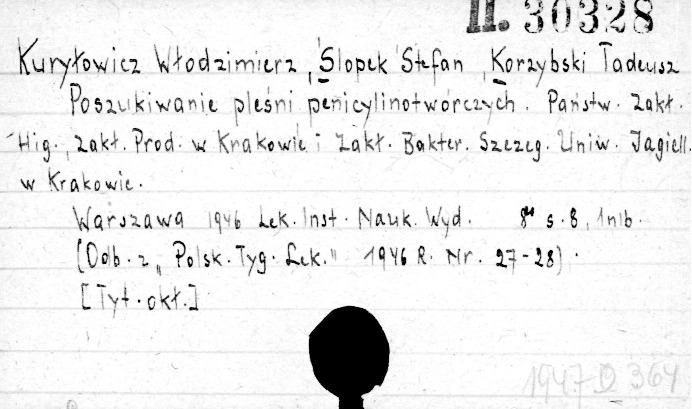 II. 30328
Kuryłowicz Włodzimierz, Ślopek Stefan, Korzybski Tadeusz
Poszukiwanie pleśni penicylinotwórczych. Państw. Zakł.
Hig., Zakł. Prod. w Krakowie i Zakł. Bakter. Szczeg. Uniw. Jagiell.
w Krakowie.
Warszawa 1946 Lek. Inst. Nauk. Wyd. 8° s. 8, 1 nlb.
[Odb. z „Polsk. Tyg. Lek." 1946 R. Nr. 27-28).
[Tyt. okł.]
1947 D 364